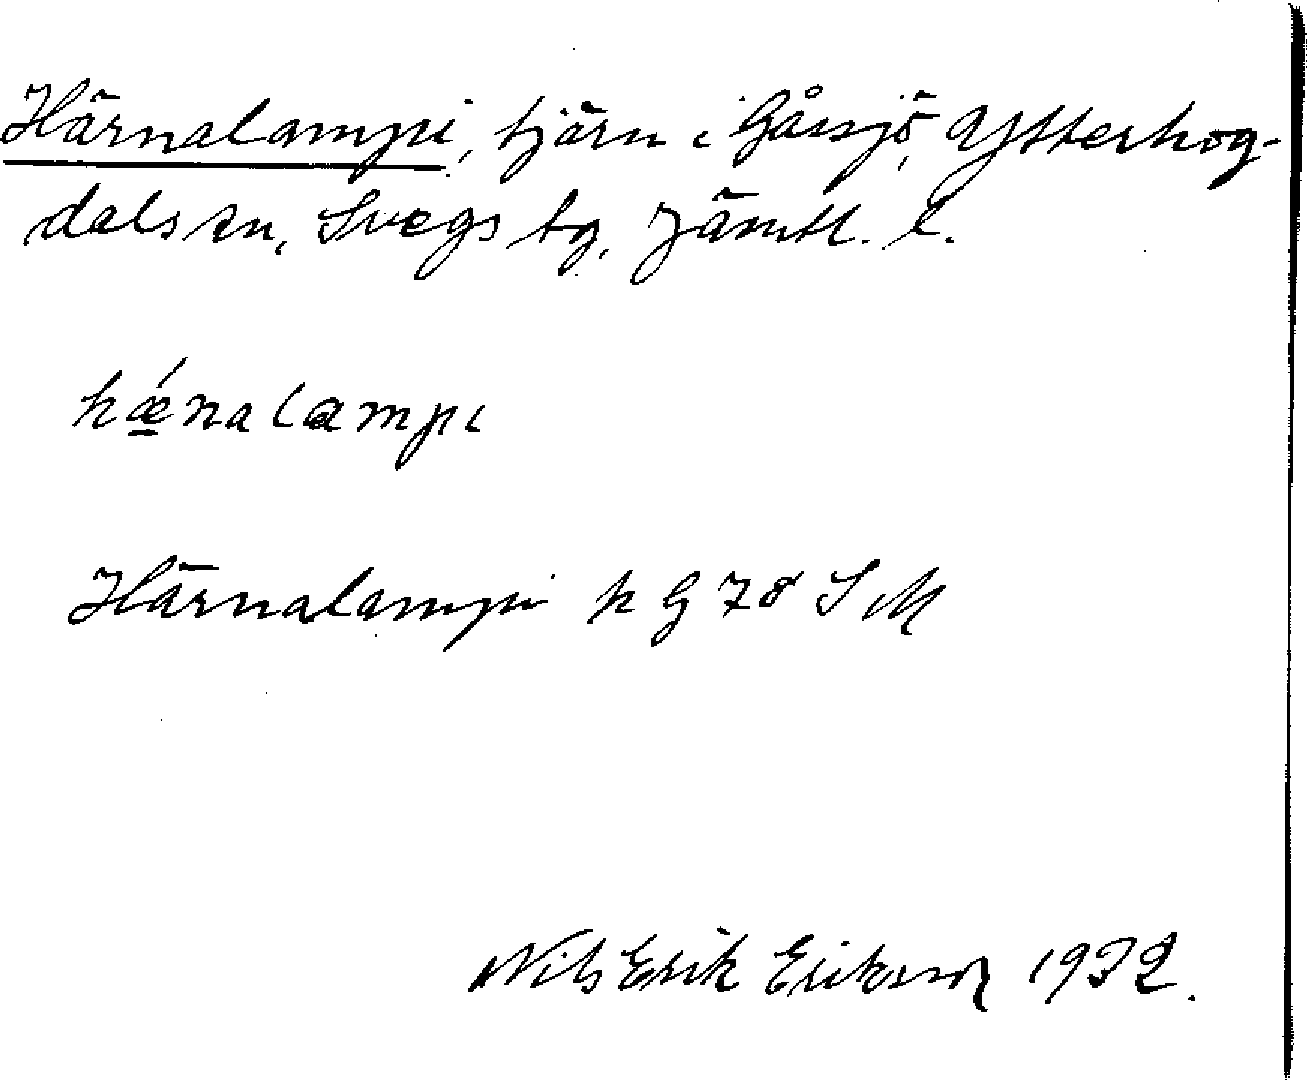 Härnalampi, tjärn i Gåssjö, Ytterhog-
dals sn, Svegs tg, Jämtl. l.
hǽnalampi
Härnalampi k G 78 S M
Nils Erik Eriksson 1932.